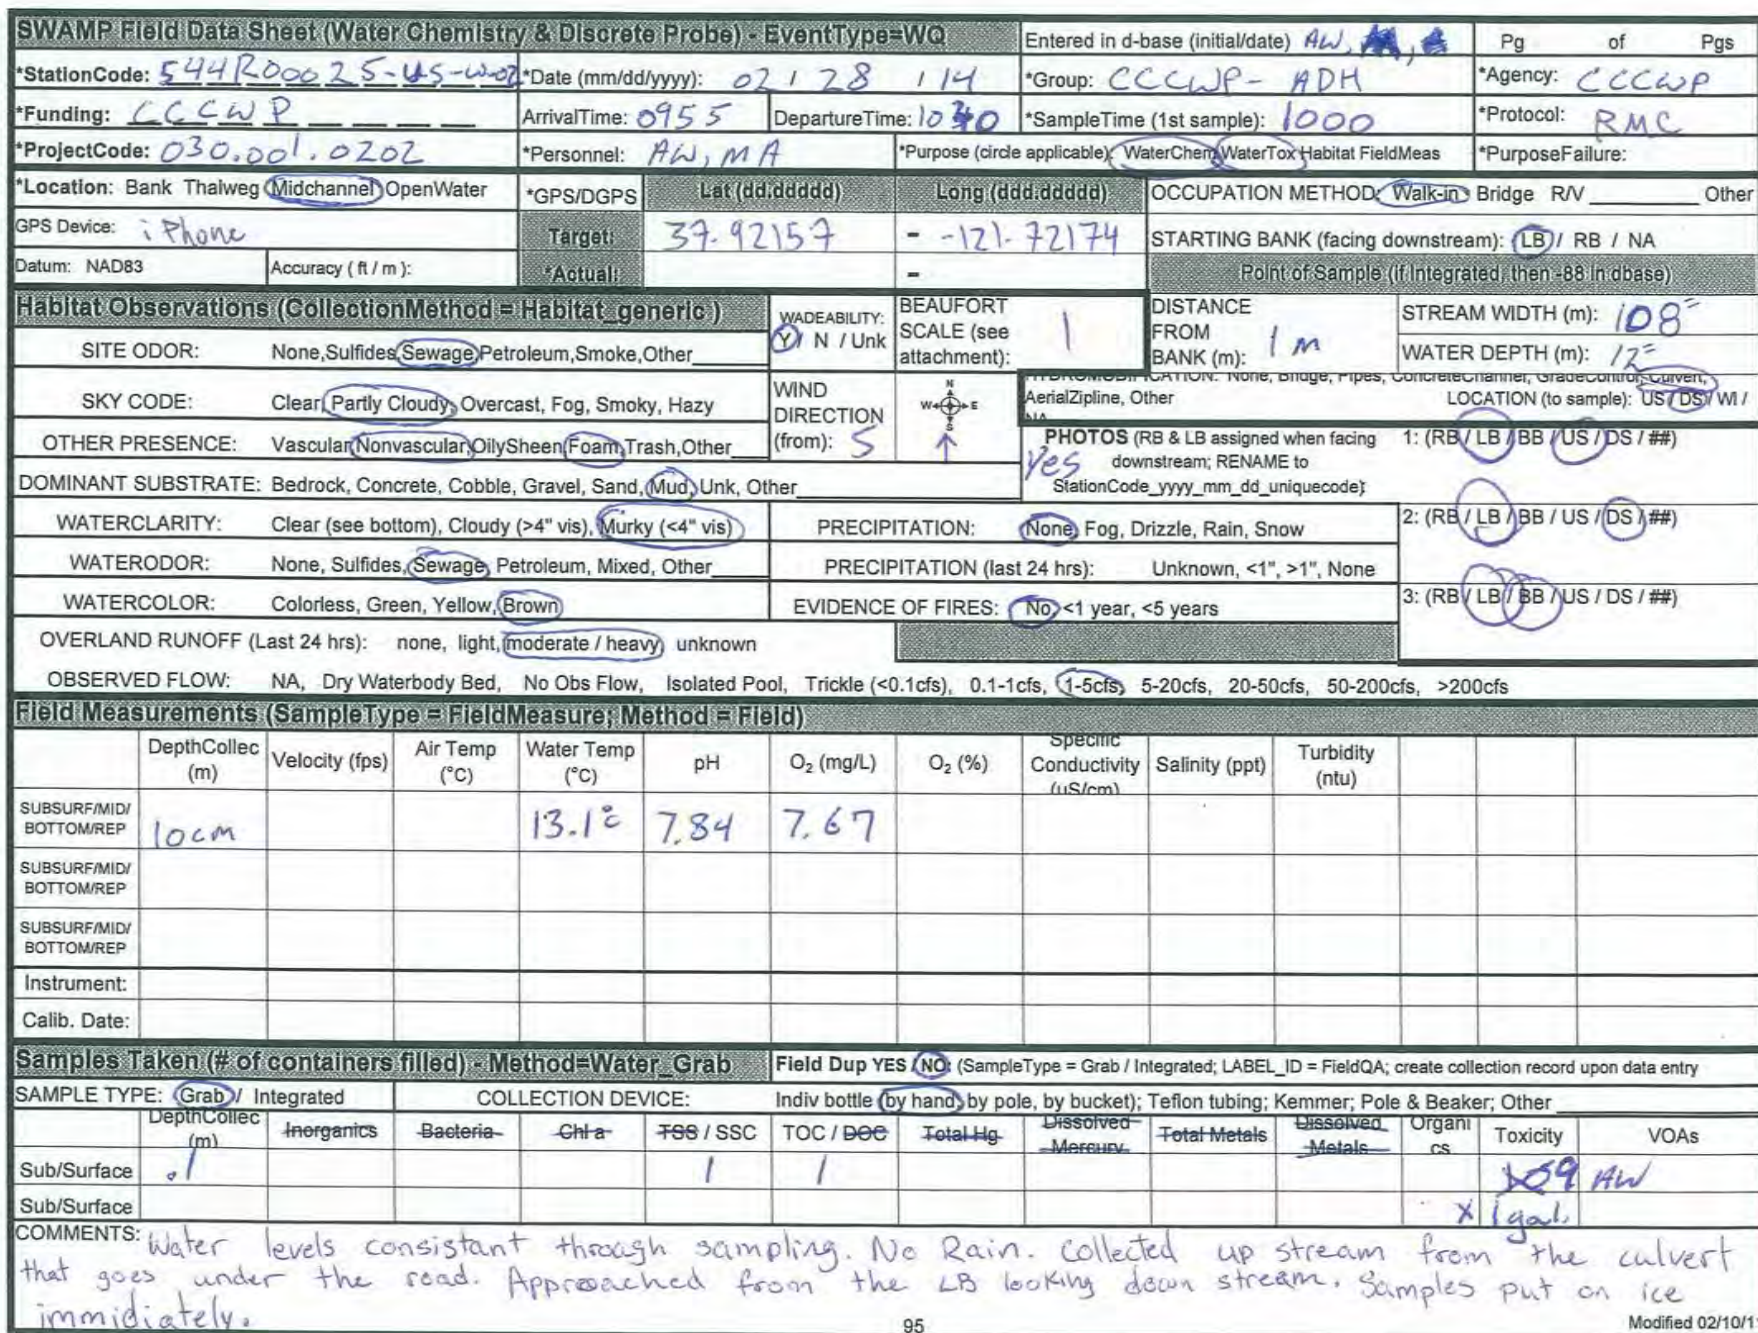 SWAMP Field Data Sheet (Water Chemistry & Discrete Probe) - EventType=WQ Entered in d-base (initial/date) AW, Pg of Pgs
*StationCode: 544R00025-US-W-02 *Date (mm/dd/yyyy): 02 / 28 / 14 *Group: CCCWP- ADH *Agency: CCCWP
*Funding: CCCWP ArrivalTime: 0955 DepartureTime: *SampleTime (1st sample): 1000 *Protocol: RMC
*ProjectCode: 030.001.0202 *Personnel: AW, MA *Purpose (circle applicable): WaterChem WaterTox Habitat FieldMeas *PurposeFailure:
*Location: Bank Thalweg Midchannel OpenWater *GPS/DGPS Lat (dd.ddddd) Long (ddd.ddddd) OCCUPATION METHOD: Walk-in Bridge R/V Other
GPS Device: iPhone Target: 37.92157 - -121.72174 STARTING BANK (facing downstream): LB / RB / NA
Datum: NAD83 Accuracy ( ft / m ): *Actual: - Point of Sample (if Integrated, then -88 in dbase)
Habitat Observations (CollectionMethod = Habitat_generic ) WADEABILITY: Y / N / Unk BEAUFORT SCALE (see attachment): 1 DISTANCE FROM BANK (m): 1 m STREAM WIDTH (m): 108"
SITE ODOR: None,Sulfides,Sewage,Petroleum,Smoke,Other WATER DEPTH (m): 12"
SKY CODE: Clear, Partly Cloudy, Overcast, Fog, Smoky, Hazy WIND DIRECTION (from): S N W E S HYDROMODIFICATION: None, Bridge, Pipes, ConcreteChannel, GradeControl, Culvert, AerialZipline, Other LOCATION (to sample): US / DS / WI / NA
OTHER PRESENCE: Vascular,Nonvascular,OilySheen,Foam,Trash,Other PHOTOS (RB & LB assigned when facing downstream; RENAME to StationCode_yyyy_mm_dd_uniquecode): Yes 1: (RB / LB / BB / US / DS / ##)
DOMINANT SUBSTRATE: Bedrock, Concrete, Cobble, Gravel, Sand, Mud, Unk, Other
WATERCLARITY: Clear (see bottom), Cloudy (>4" vis), Murky (<4" vis) PRECIPITATION: None, Fog, Drizzle, Rain, Snow 2: (RB / LB / BB / US / DS / ##)
WATERODOR: None, Sulfides, Sewage, Petroleum, Mixed, Other PRECIPITATION (last 24 hrs): Unknown, <1", >1", None
WATERCOLOR: Colorless, Green, Yellow, Brown EVIDENCE OF FIRES: No, <1 year, <5 years 3: (RB / LB / BB / US / DS / ##)
OVERLAND RUNOFF (Last 24 hrs): none, light, moderate / heavy, unknown
OBSERVED FLOW: NA, Dry Waterbody Bed, No Obs Flow, Isolated Pool, Trickle (<0.1cfs), 0.1-1cfs, 1-5cfs, 5-20cfs, 20-50cfs, 50-200cfs, >200cfs
Field Measurements (SampleType = FieldMeasure; Method = Field)
DepthCollec (m) Velocity (fps) Air Temp (°C) Water Temp (°C) pH O₂ (mg/L) O₂ (%) Specific Conductivity (uS/cm) Salinity (ppt) Turbidity (ntu)
SUBSURF/MID/ BOTTOM/REP 10cm 13.1°c 7.84 7.67
SUBSURF/MID/ BOTTOM/REP
SUBSURF/MID/ BOTTOM/REP
Instrument:
Calib. Date:
Samples Taken (# of containers filled) - Method=Water_Grab Field Dup YES / NO: (SampleType = Grab / Integrated; LABEL_ID = FieldQA; create collection record upon data entry
SAMPLE TYPE: Grab / Integrated COLLECTION DEVICE: Indiv bottle (by hand, by pole, by bucket); Teflon tubing; Kemmer; Pole & Beaker; Other
DepthCollec (m) Inorganics Bacteria Chl a TSS / SSC TOC / DOC Total Hg Dissolved Mercury Total Metals Dissolved Metals Organi cs Toxicity VOAs
Sub/Surface .1 1 1 9 AW
Sub/Surface x 1 gal.
COMMENTS: Water levels consistant through sampling. No Rain. Collected up stream from the culvert
that goes under the road. Approached from the LB looking down stream. Samples put on ice
immidiately.
95 Modified 02/10/1